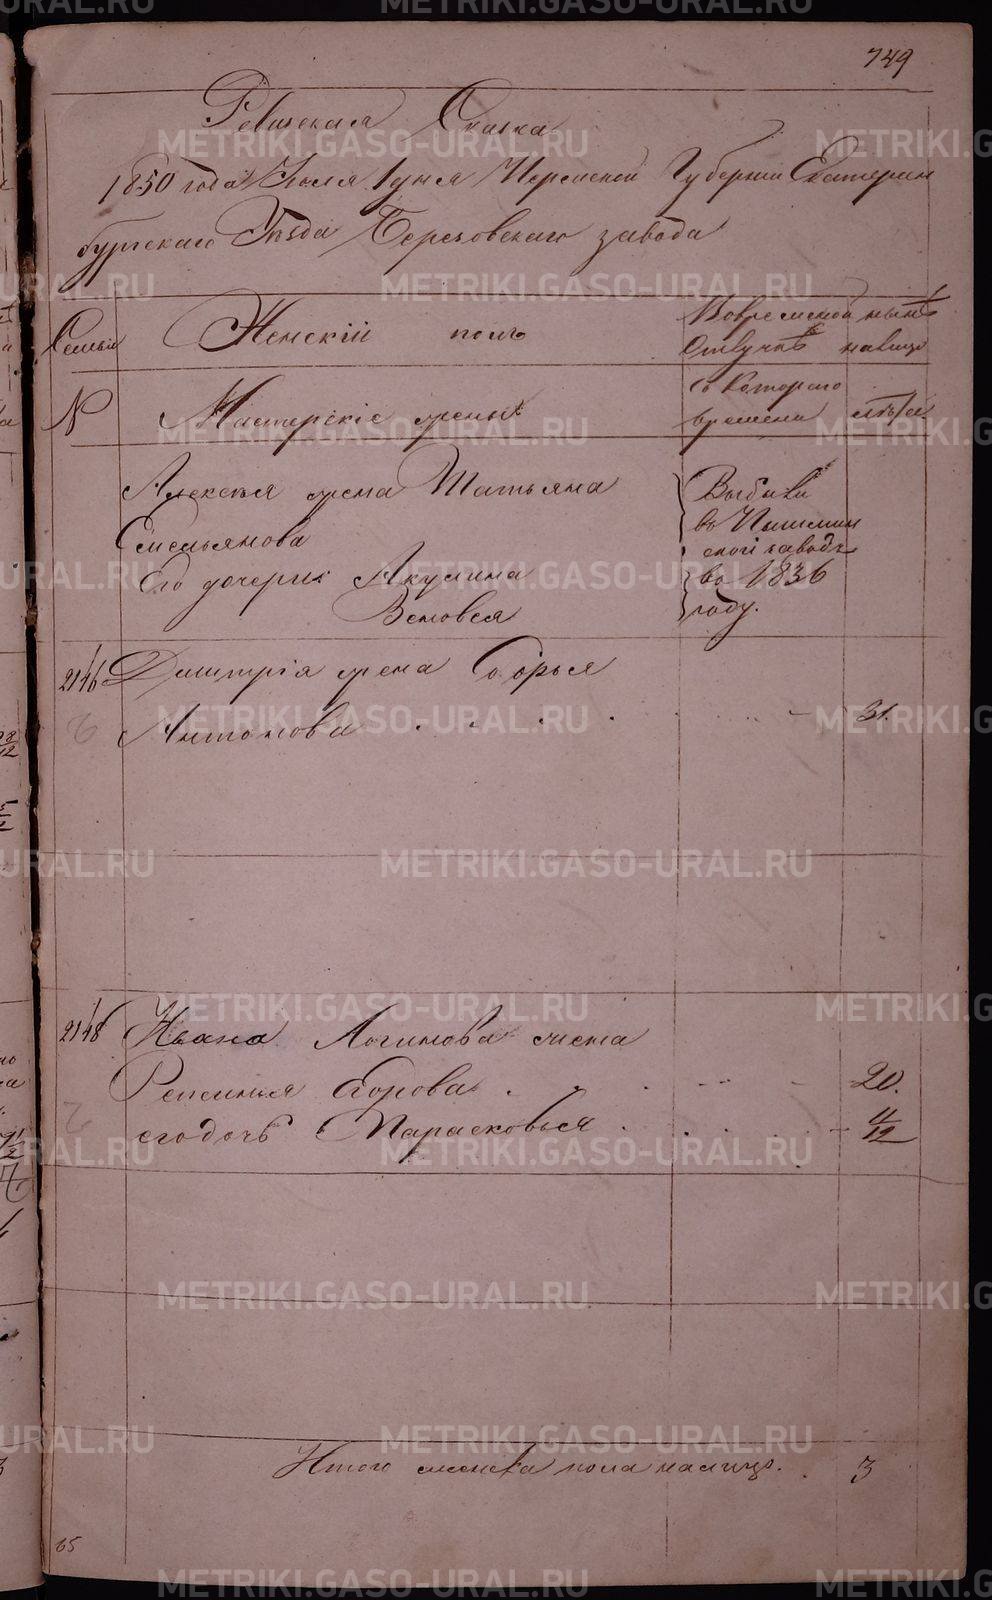 749
Ревизская Сказка
1850 года Июля 1 дня Пермской Губернии Екатерин
бургского Уѣзда Березовского завода
Семьи
Женскій полъ
Вовременной
отлучкѣ
нынѣ
налицо
№
Мастерскіе жены
съ которого
времени
лѣта
Алексѣя жена Татьяна
Емельянова
Его дочери Акулина
Выбыли
въ Пышмин
ской заводъ
во 1836
году.
2146 Дмитрія жена Софья
Антонова . . . . . . . 31.
2148 Ивана Логинова жена
Егорова . . . . . 20.
его дочь Парасковья . . . . . 11/12
Итого женска пола налицо. . 3
65
METRIKI.GASO-URAL.RU